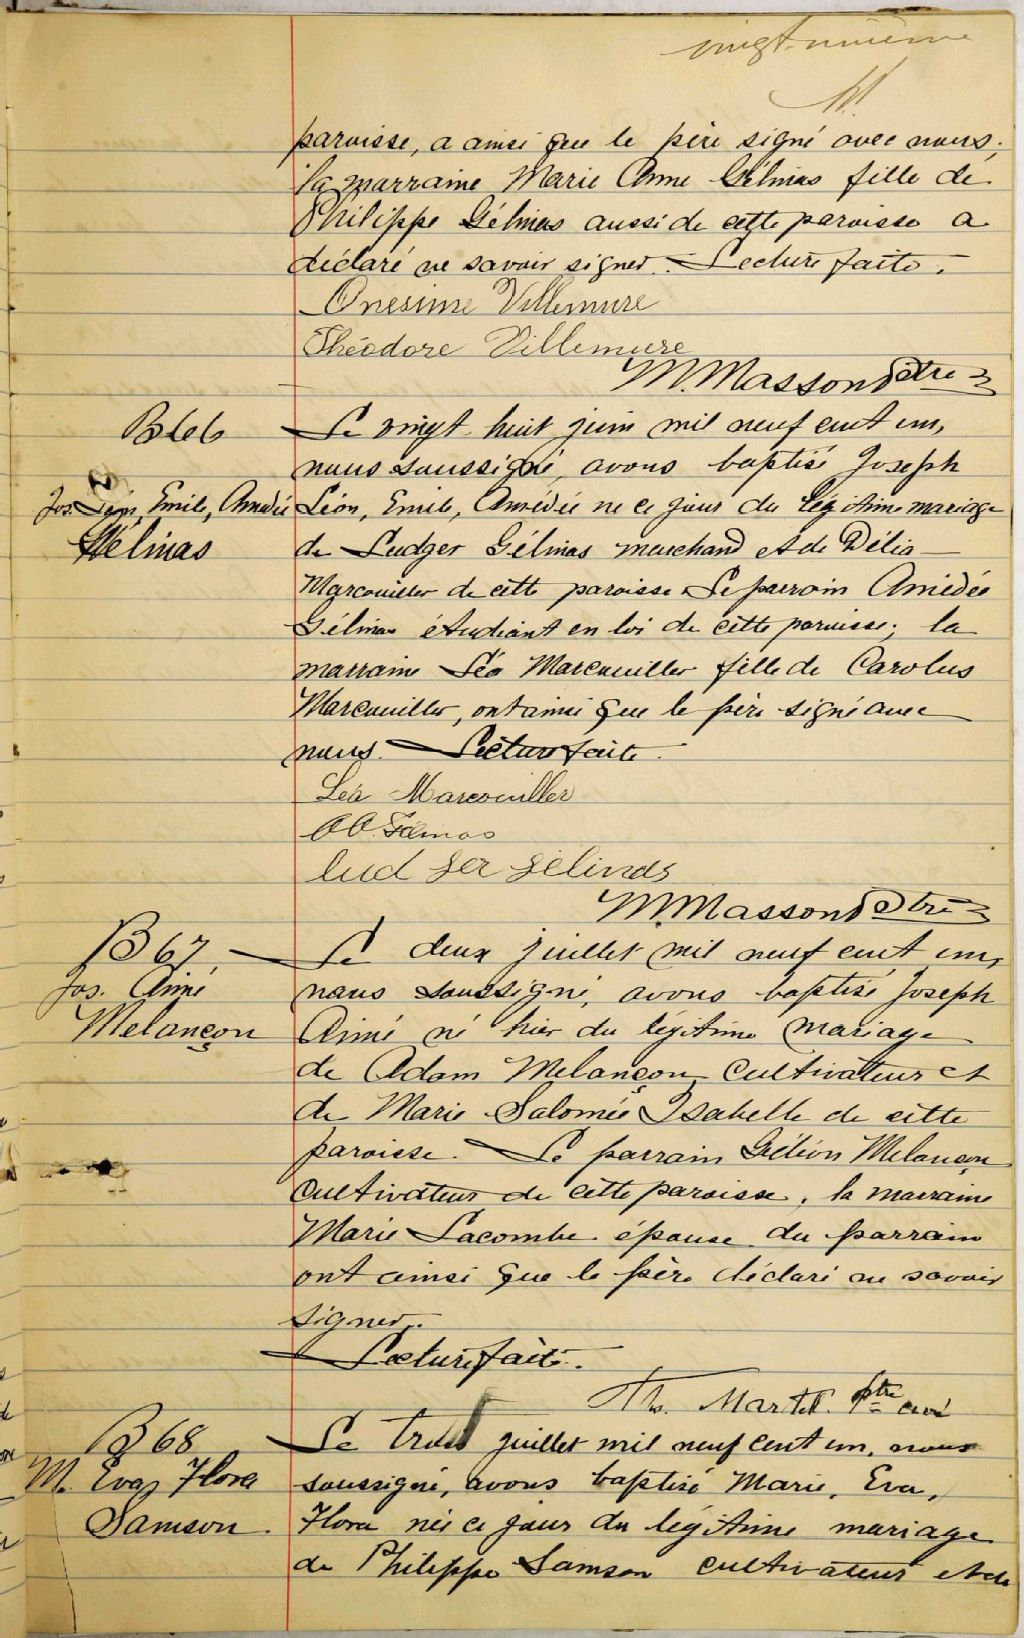 vingt-unième
paroisse, a ainsi que le père signé avec nous;
la marraine Marie Anne Gélinas fille de
Philippe Gélinas aussi de cette paroisse a
déclaré ne savoir signer. Lecture faite.
Onesime Villemure
Théodore Villemure
M. Masson Ptre
B 66
Jos. Léon, Emile, Amédée
Gélinas
Le vingt huit juin mil neuf cent un,
nous soussigné, avons baptisé Joseph
Léon, Emile, Amédée né ce jour du légitime mariage
de Ludger Gélinas marchand et de Délia
Marcouiller de cette paroisse. Le parrain Amédée
Gélinas étudiant en loi de cette paroisse; la
marraine Léa Marcouiller fille de Carolus
Marcouiller, ont ainsi que le père signé avec
nous. Lecture faite.
Léa Marcouiller
A A. Gélinas
Lud ger gélinas
M. Masson Ptre
B 67.
Jos. Aimé
Melançon
Le deux juillet mil neuf cent un,
nous soussigné, avons baptisé Joseph
Aimé né hier du légitime mariage
de Adam Melançon cultivateur et
de Marie Salomée Isabelle de cette
paroisse. Le parrain Gédéon Melançon
cultivateur de cette paroisse, la marraine
Marie Lacombe épouse du parrain
ont ainsi que le père déclaré ne savoir
signer.
Lecture faite.
Th. Martel Ptre curé
B 68
M. Eva, Flora
Samson.
Le trois juillet mil neuf cent un, nous
soussigné, avons baptisé Marie, Eva,
Flora née ce jour du légitime mariage
de Philippe Samson cultivateur et de